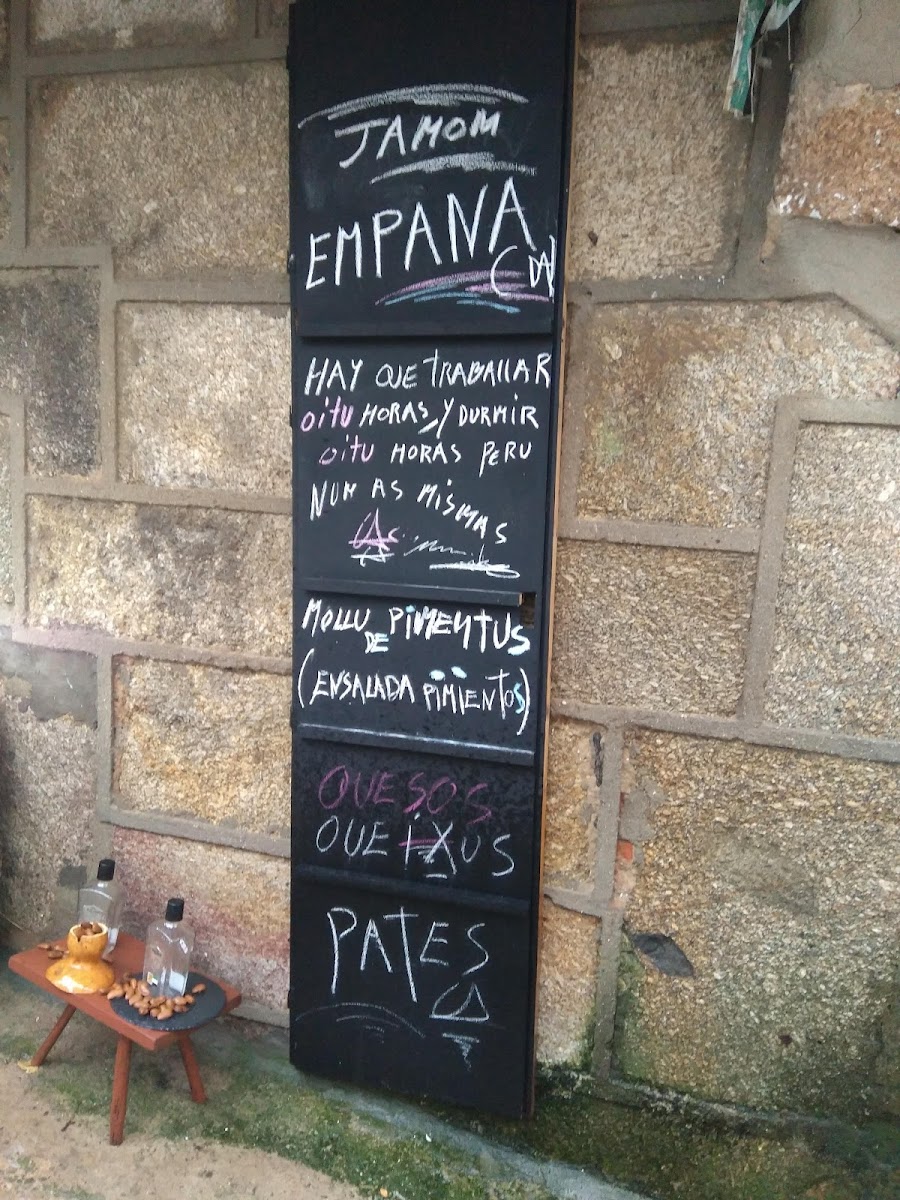 JAMOM
EMPANA
(DA)
HAY QUE TRABALLAR
OITU HORAS, Y DURMIR
OITU HORAS PERU
NUN AS MISMAS
MOLLU DE PIMENTUS
(ENSALADA PIMIENTOS)
QUESOS
QUEIXUS
PATES